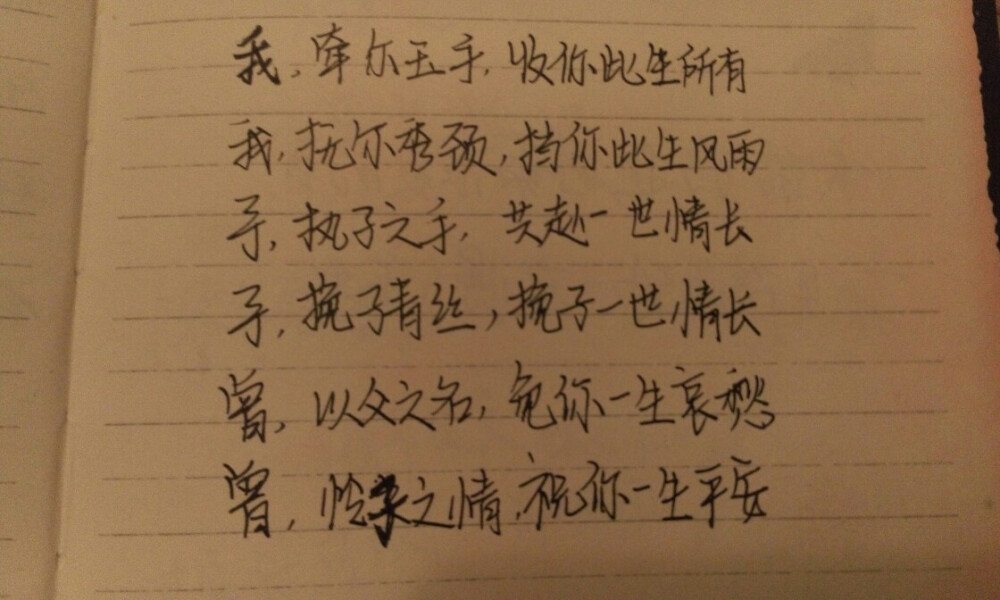 我，牵尔玉手，收你此生所有
我，抚尔秀颈，挡你此生风雨
予，执子之手，共赴一世情长
予，挽子青丝，挽子一世情长
曾，以父之名，免你一生哀愁
曾，怜子之情，祝你一生平安